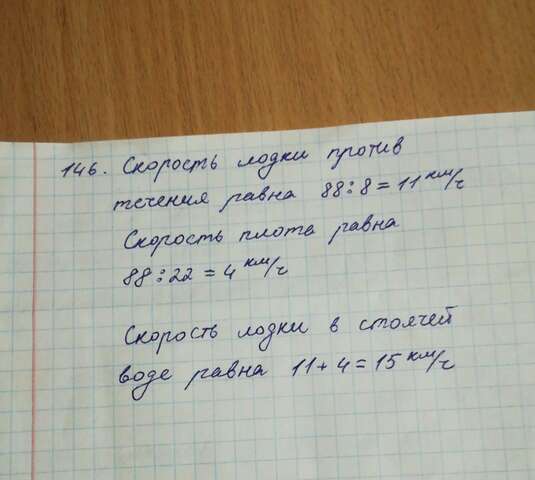 146. Скорость лодки против
течения равна 88:8 = 11 км/ч
Скорость плота равна
88:22 = 4 км/ч
Скорость лодки в стоячей
воде равна 11 + 4 = 15 км/ч